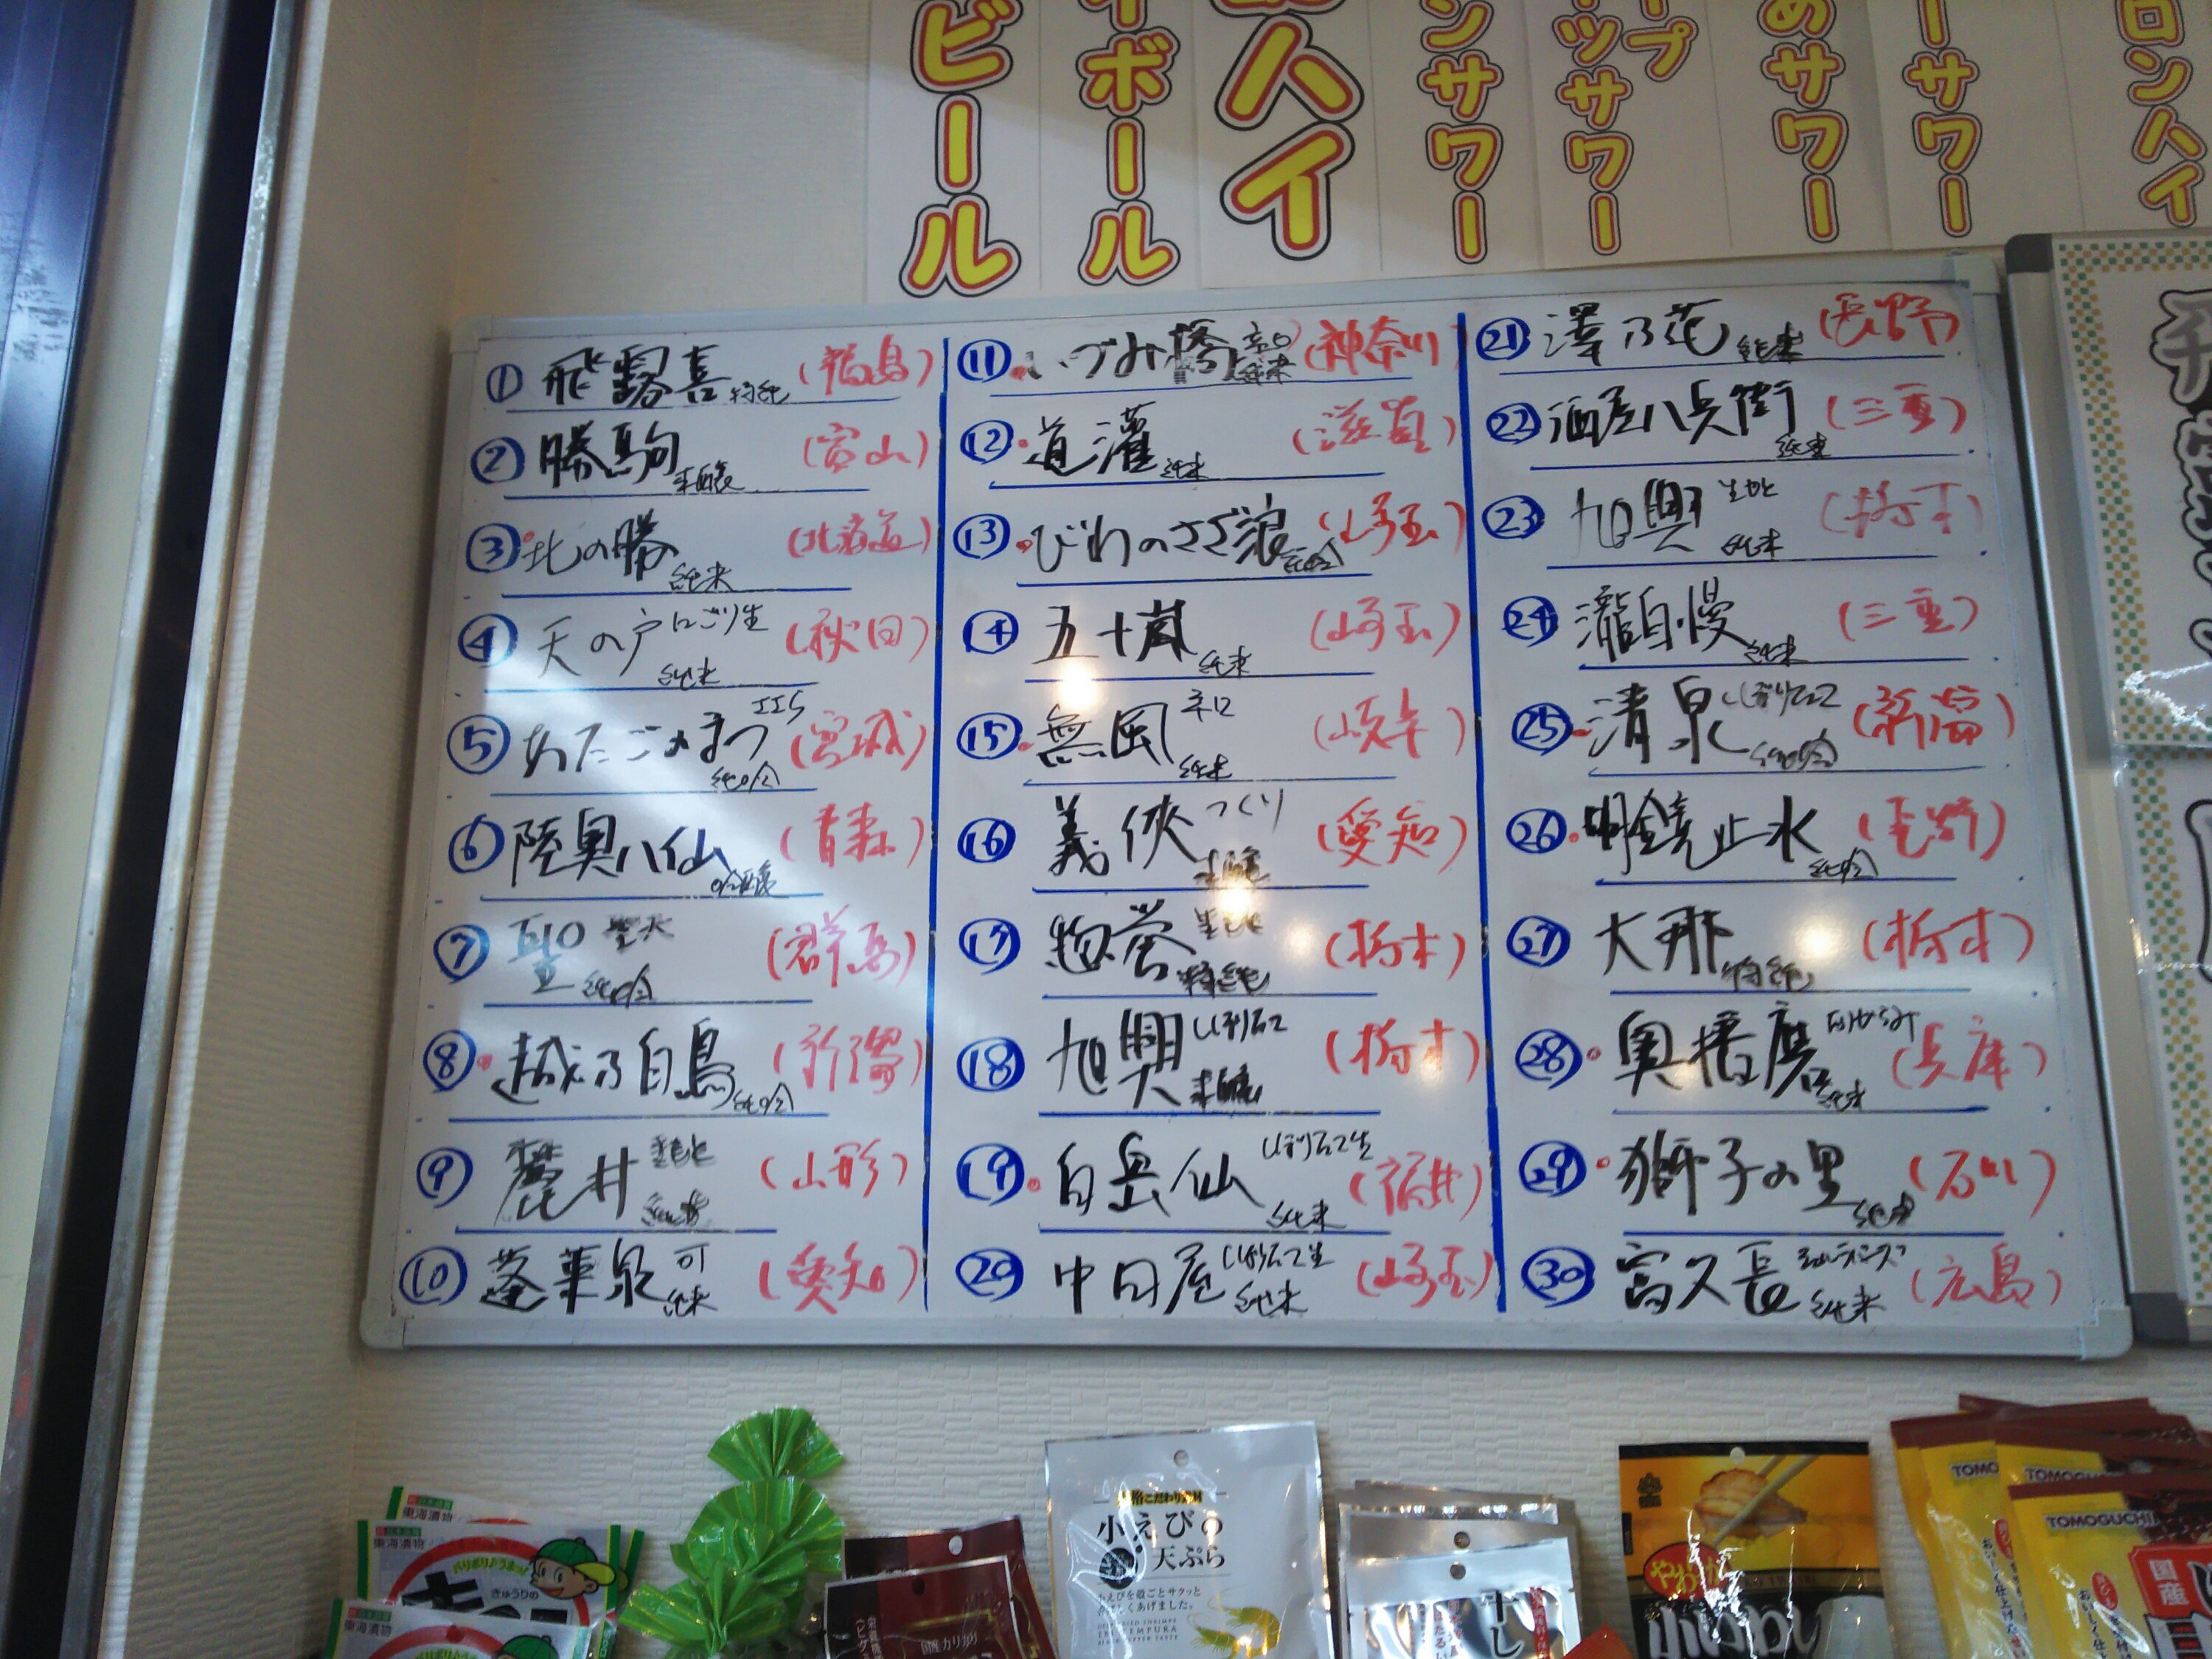 ビール
ボール
ハイ
ンサワー
プ
ッサワー
めサワー
ーサワー
ロンハイ
① 飛露喜 特純 (福島)
② 勝駒 本醸 (富山)
③ 北の勝 純米 (北海道)
④ 天の戸 にごり生 純米 (秋田)
⑤ あたごのまつ 純吟 (宮城)
⑥ 陸奥八仙 吟醸 (青森)
⑦ 聖 純吟 (群馬)
⑧ 越乃白鳥 純吟 (新潟)
⑨ 麓井 (山形)
⑩ 蓬莱泉 可 純米 (愛知)
⑪ いづみ橋 辛口 純米 (神奈川)
⑫ 道灌 純米 (滋賀)
⑬ びわのさざ浪 純吟 (埼玉)
⑭ 五十嵐 純米 (埼玉)
⑮ 無風 辛口 純米 (岐阜)
⑯ 義侠 つくり 本醸 (愛知)
⑰ 惣誉 生酛 特純 (栃木)
⑱ 旭興 しぼりたて 本醸 (栃木)
⑲ 白岳仙 しぼりたて生 純米 (福井)
⑳ 中田屋 しぼりたて生 純米 (埼玉)
㉑ 澤乃花 純米 (長野)
㉒ 酒屋八兵衛 純米 (三重)
㉓ 旭興 生もと 純米 (栃木)
㉔ 瀧自慢 純米 (三重)
㉕ 清泉 しぼりたて 純吟 (新潟)
㉖ 明鏡止水 純吟 (長野)
㉗ 大那 特純 (栃木)
㉘ 奥播磨 純米 (兵庫)
㉙ 獅子の里 純米 (石川)
㉚ 富久長 純米 (広島)
東海漬物
東海漬物
パリポリうまっ!
きゅうりの
東海漬物
国産カリカリ
小えびの
天ぷら
小えびを殻ごとサクッと
香ばしくあげました。
干し
やわらか
TOMO
TOMOGUCHI
国産